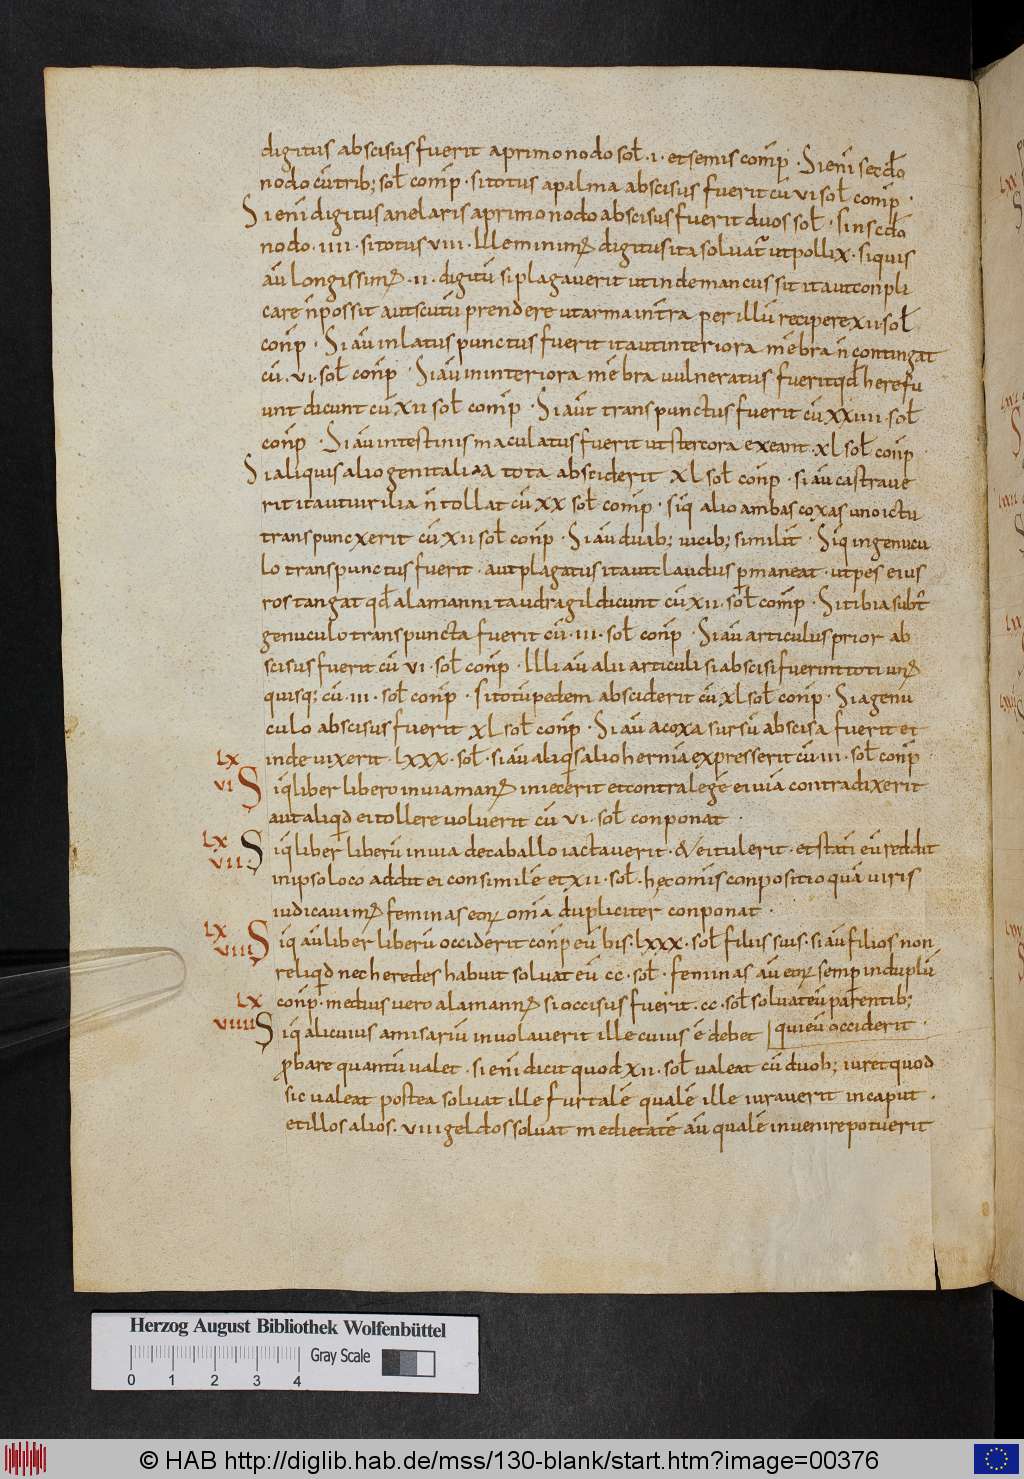 digitus abscisus fuerit aprimo nodo sol̅ · i · et semis conp̅ · Si eni̅ sec̅do
nodo cu̅ trib; sol̅ conp̅ · si totus a palma abscisus fuerit cu̅ vi sol̅ conp̅ ·
Si eni̅ digitus anelaris a primo nodo abscisus fuerit duos sol̅ · sin sec̅do
nodo · iiii · si totus viii · Ille minim digitus ita solvat̅ ut pollix · si quis
au̅ longissim · ii · digitu̅ si plagaverit ut inde mancus sit ita ut conpli
care n̅ possit aut scutu̅ prendere ut arma in t̅ra per illu̅ recipere xii sol̅
conp̅ · Si au̅ in latus punctus fuerit ita ut interiora me̅bra n̅ contingat
cu̅ · vi · sol̅ conp̅ · Si au̅ in interiora me̅bra vulneratus fuerit qd̅ herefu
unt dicunt cu̅ xii sol̅ conp̅ · Si aut̅ transpunctus fuerit cu̅ xxiiii · sol̅
conp̅ · Si au̅ intestinis maculatus fuerit ut stercora exeant · xl sol̅ conp̅ ·
Si aliquis alio genitalia tota absciderit xl sol̅ conp̅ · si au̅ castrave
rit ita ut virilia n̅ tollat cu̅ xx sol̅ conp̅ · siq̅ alio ambas coxas uno ictu
transpuncxerit cu̅ xii sol̅ conp̅ · Si au̅ duab; vicib; simili̅t · Siq̅ in genucu
lo transpunctus fuerit · aut plagatus ita ut claudus p̅maneat · ut pes eius
ros tangat qd̅ alamanni taudragil dicunt cu̅ xii · sol̅ conp̅ · Si tibia subt̅
genuculo transpuncta fuerit cu̅ · iii · sol̅ conp̅ · Si au̅ articulus prior ab
scisus fuerit cu̅ vi · sol̅ conp̅ · Illi au̅ alii articuli si abscisi fuerint toti un
quisq; cu̅ · iii · sol̅ conp̅ · si totu̅ pedem absciderit cu̅ xl sol̅ conp̅ · Si a genu
culo abscisus fuerit xl sol̅ conp̅ · Si au̅ a coxa sursu̅ abscisa fuerit et
inde vixerit · lxxx · sol̅ · si au̅ aliq̅s alio hernia̅ expresserit cu̅ iii · sol̅ conp̅
lx
vi Siq̅ liber libero in via man iniecerit et contra lege̅ ei via̅ contradixerit
aut aliqd̅ ei tollere voluerit cu̅ vi · sol̅ conponat ·
lx
vii: Siq̅ liber liberu̅ in via de caballo iactaverit · & ei tulerit · et stati̅ eu̅ reddit
in ipso loco addit ei consimile̅ et xii · sol̅ · hęc om̅is conpositio qua̅ viris
iudicavim feminas eor om̅ia dupliciter conponat ·
lx
viii Siq̅ au̅ liber liberu̅ occiderit conp̅ eu̅ bis · lxxx · sol̅ filiis suis · si au̅ filios non
reliqd̅ nec heredes habuit solvat eu̅ cc · sol̅ · feminas au̅ eor semp̅ in duplu̅
conp̅ · medius vero alamann si occisus fuerit · cc · sol̅ solvat eu̅ parentib;
lx
viiii Siq̅ alicuius amisariu̅ involaverit ille cuius e̅ debet | qui eu̅ occiderit ·
p̅bare quantu̅ valet · si eni̅ dicit quod xii · sol̅ valeat cu̅ duob; iuret quod
sic valeat postea solvat ille furtale̅ quale̅ ille iuraverit in caput ·
et illos alios · viii geldos solvat medietate̅ au̅ quale̅ invenire potuerit
Herzog August Bibliothek Wolfenbüttel
Gray Scale
0 1 2 3 4
© HAB http://diglib.hab.de/mss/130-blank/start.htm?image=00376